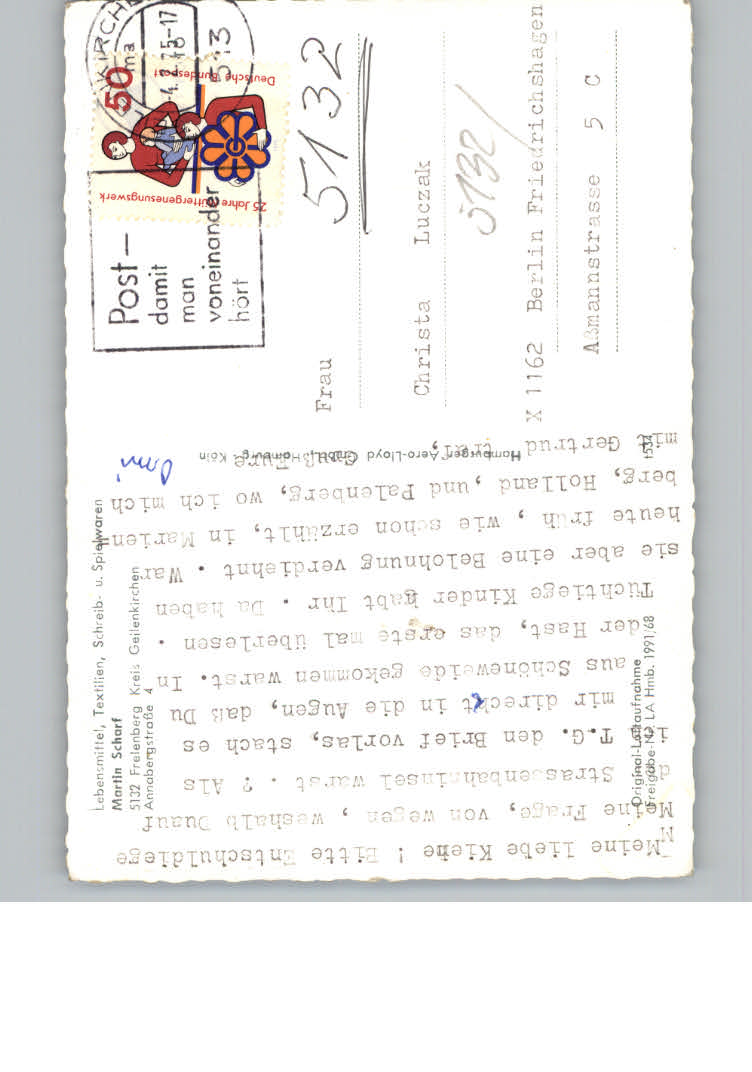 Meine liebe Kiene ! Bitte Entschuldiege
Meine Frage, von wegen , weshalb Duauf
d Strassenbahninsel warst . ? Als
ich T.G. den Brief vorlas, stach es
mir direckt in die Augen, daß Du
aus Schöneweide gekommen warst. In
der Hast, das erste mal überlesen .
Tüchtiege Kinder habt Ihr . Da haben
sie aber eine Belohnung verdiehnt . War
heute früh , wie schon erzählt, in Marien=
berg, Holland ,und Palenberg, wo ich mich
mit Gertrud traf,
Gruß Eure
Omi
Lebensmittel, Textilien, Schreib- u. Spielwaren
Martin Scharf
5132 Frelenberg Kreis Geilenkirchen
Annabergstraße 4
Original-Luftaufnahme
Freigabe-Nr. LA Hmb. 1991/68
Hamburger Aero-Lloyd GmbH, Hamburg - Köln
Deutsche Bundespost
50
25 Jahre Müttergenesungswerk
KIRCHE
513
-4.2.75-17
Post-
damit
man
voneinander
hört
5132
Frau
Christa Luczak
5132/
X 1162 Berlin Friedrichshagen
Aßmannstrasse 5 C